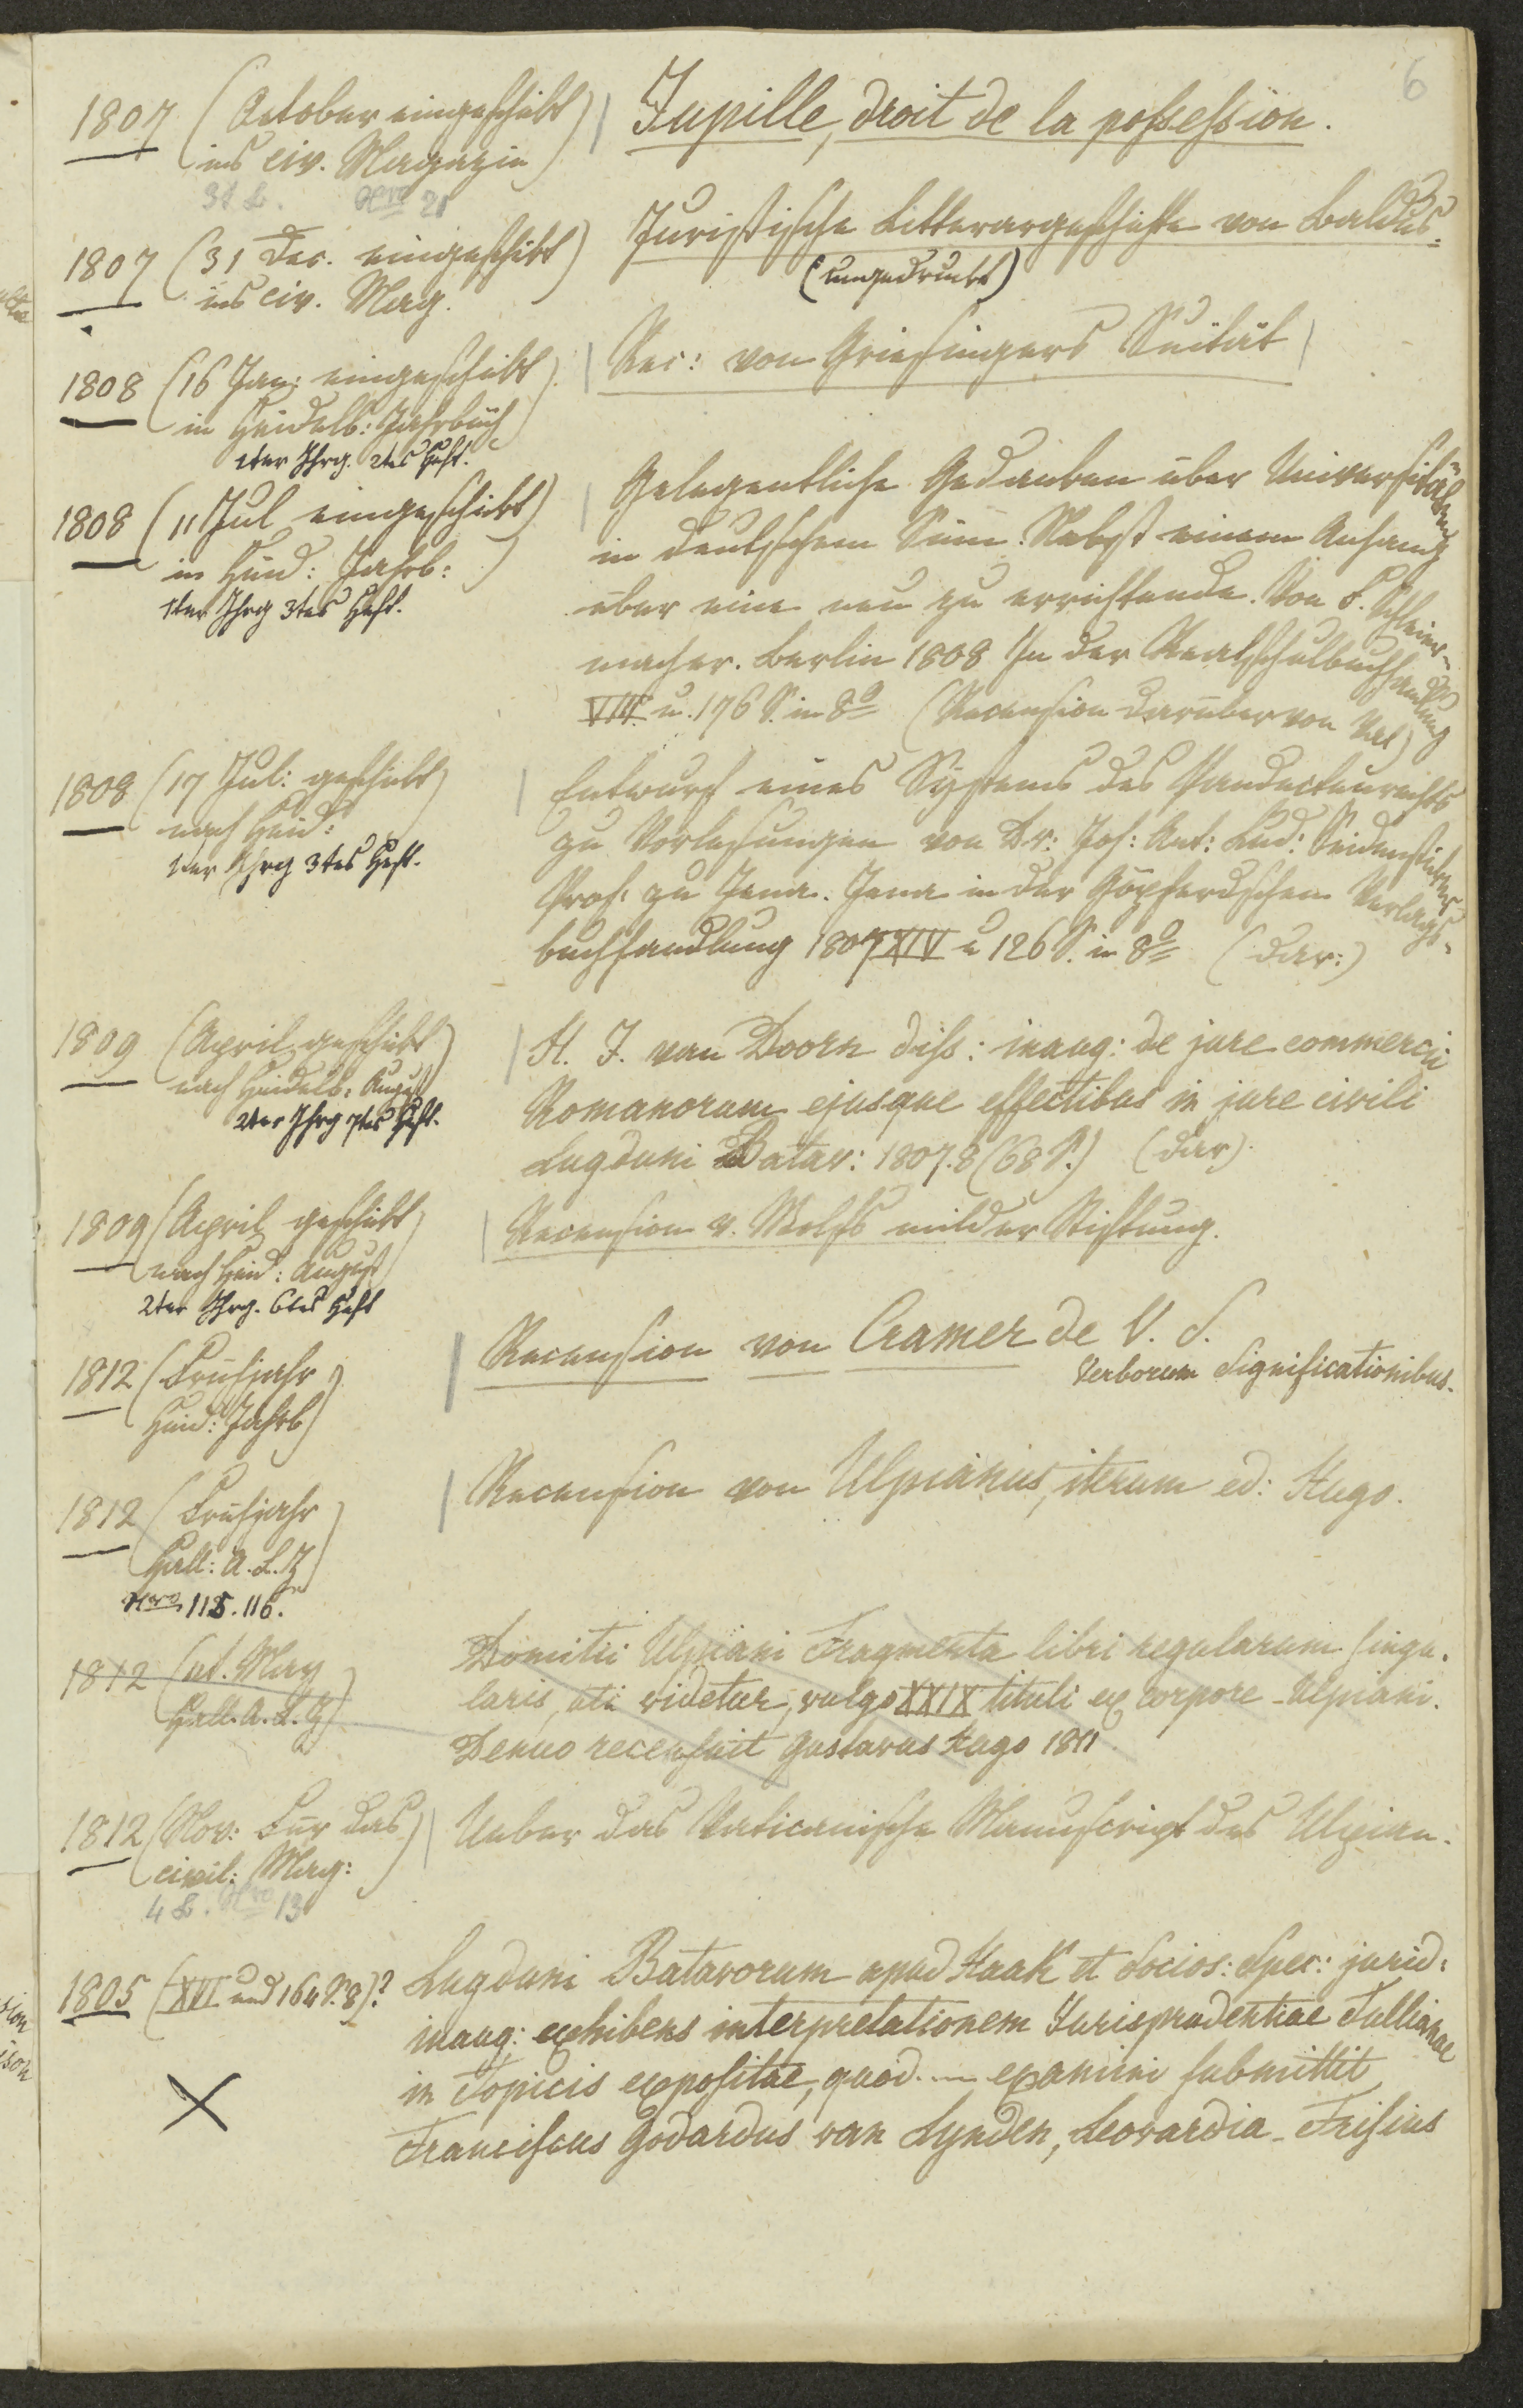 6
1807 (October eingeschikt
ins civ. Magazin)
3t B. Nro 21
Jupille, droit de la possession.
1807 (31 Dec. eingeschikt
ins civ. Mag.)
Juristische Litterargeschichte von Baldus.
(ungedruckt)
1808 (16 Jan: eingeschikt
in Heidelb: Jahrbuch)
1ter Jhrg. 2tes Heft.
Rec: von Griesingers Suität
1808 (11 Jul eingeschikt
in Heid: Jahrb:)
1ter Jhrg 3tes Heft.
Gelegentliche Gedanken über Universitäten
in deutschem Sinn. Nebst einem Anhang
über eine neu zu errichtende. Von F. Schleier-
macher. Berlin 1808 In der Realschulbuchhandlung
VIII u. 176 S. in 8º (Recension darüber von
1808 (17 Jul: geschikt
nach Heid:)
1ter Jhrg 3tes Heft.
Entwurf eines Systems des Pandectenrechts
zu Vorlesungen von Dr: Joh: Ant: Lud: Seidensticker
Prof. zu Jena. Jena in der Göpferdschen Verlags-
buchhandlung 1807 XIV u 126 S. in 8º (dar:)
1809 (April geschikt
nach Heidelb: August)
2ter Jhrg 7tes Heft.
H. J. van Doorn diss: inaug: de jure commercii
Romanorum ejusque effectibus in jure civili
Lugduni Batav: 1807. 8 (68 S.) (dar).
1809 (April geschikt
nach Heid: August)
2ter Jhrg. 6tes Heft
Recension v. Wolfs milder Stiftung.
1812 (Frühjahr
Heid: Jahrb)
Recension von Cramer de V. S.
Verborum Significationibus.
1812 (Frühjahr
Hall: A. L. Z)
Nro 115. 116.
Recension von Ulpianus, iterum ed: Hugo.
1812 (ut. May
Hall. A. L. Z)
Domitii Ulpiani Fragmenta libri regularum singu-
laris, uti videtur, vulgo XXIX tituli ex corpore Ulpiani.
Denuo recensuit Gustavus Hugo 1811
1812 (Nov: Für das
civil: Mag:)
4 B. Nro 13
Ueber das Vaticanische Manuscript des Ulpian.
1805 (XVI und 164 S. 8)?
Lugduni Batavorum apud Haak et Socios: Spec: jurid:
inaug: exhibens interpretationem Jurisprudentiae Tullianae
in Topicis expositae, quod --- examini submittit
Franciscus Godardus van Lynden, Leovardia-Frisius